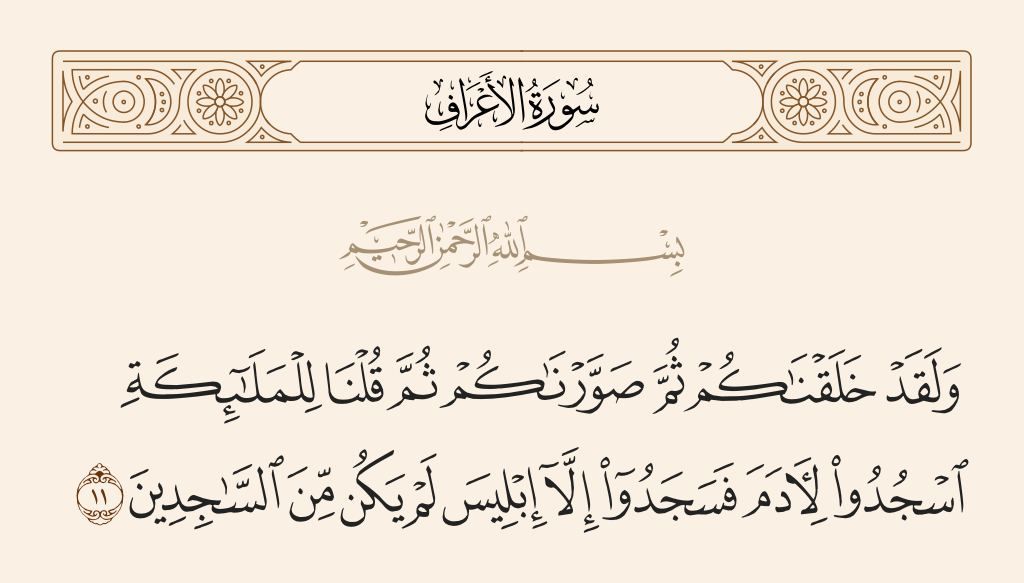 سُورَةُ الأَعْرَافِ
بِسْمِ ٱللَّهِ ٱلرَّحْمَٰنِ ٱلرَّحِيمِ
وَلَقَدْ خَلَقْنَٰكُمْ ثُمَّ صَوَّرْنَٰكُمْ ثُمَّ قُلْنَا لِلْمَلَٰٓئِكَةِ
ٱسْجُدُوا۟ لِـَٔادَمَ فَسَجَدُوٓا۟ إِلَّآ إِبْلِيسَ لَمْ يَكُن مِّنَ ٱلسَّٰجِدِينَ ١١